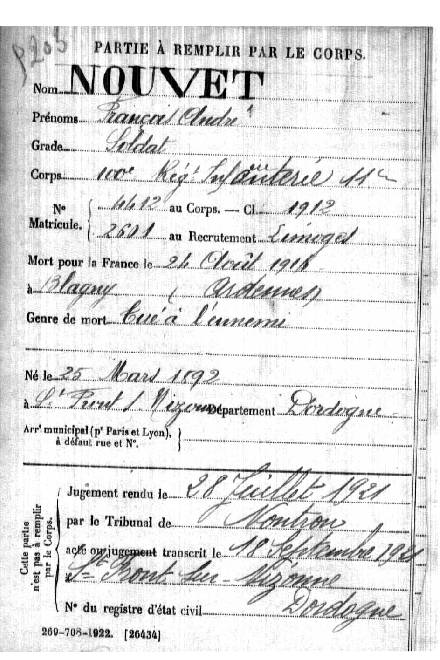 p203
PARTIE À REMPLIR PAR LE CORPS.
Nom NOUVET
Prénoms François André
Grade Soldat
Corps 100e Rég.t Infanterie 11e Cie
N° Matricule. { 4412 au Corps. — Cl. 1912
2601 au Recrutement Limoges
Mort pour la France le 24 Août 1914
à Blagny ( Ardennes
Genre de mort Tué à l'ennemi
Né le 25 Mars 1892
à St Front s/ Nizonne Département Dordogne
Arrt municipal (pr Paris et Lyon), à défaut rue et N°. }
Cette partie n'est pas à remplir par le Corps.
Jugement rendu le 28 Juillet 1921
par le Tribunal de Nontron
acte ou jugement transcrit le 18 Septembre 1921
St Front sur Nizonne
N° du registre d'état civil Dordogne
269-708-1922. [26434]